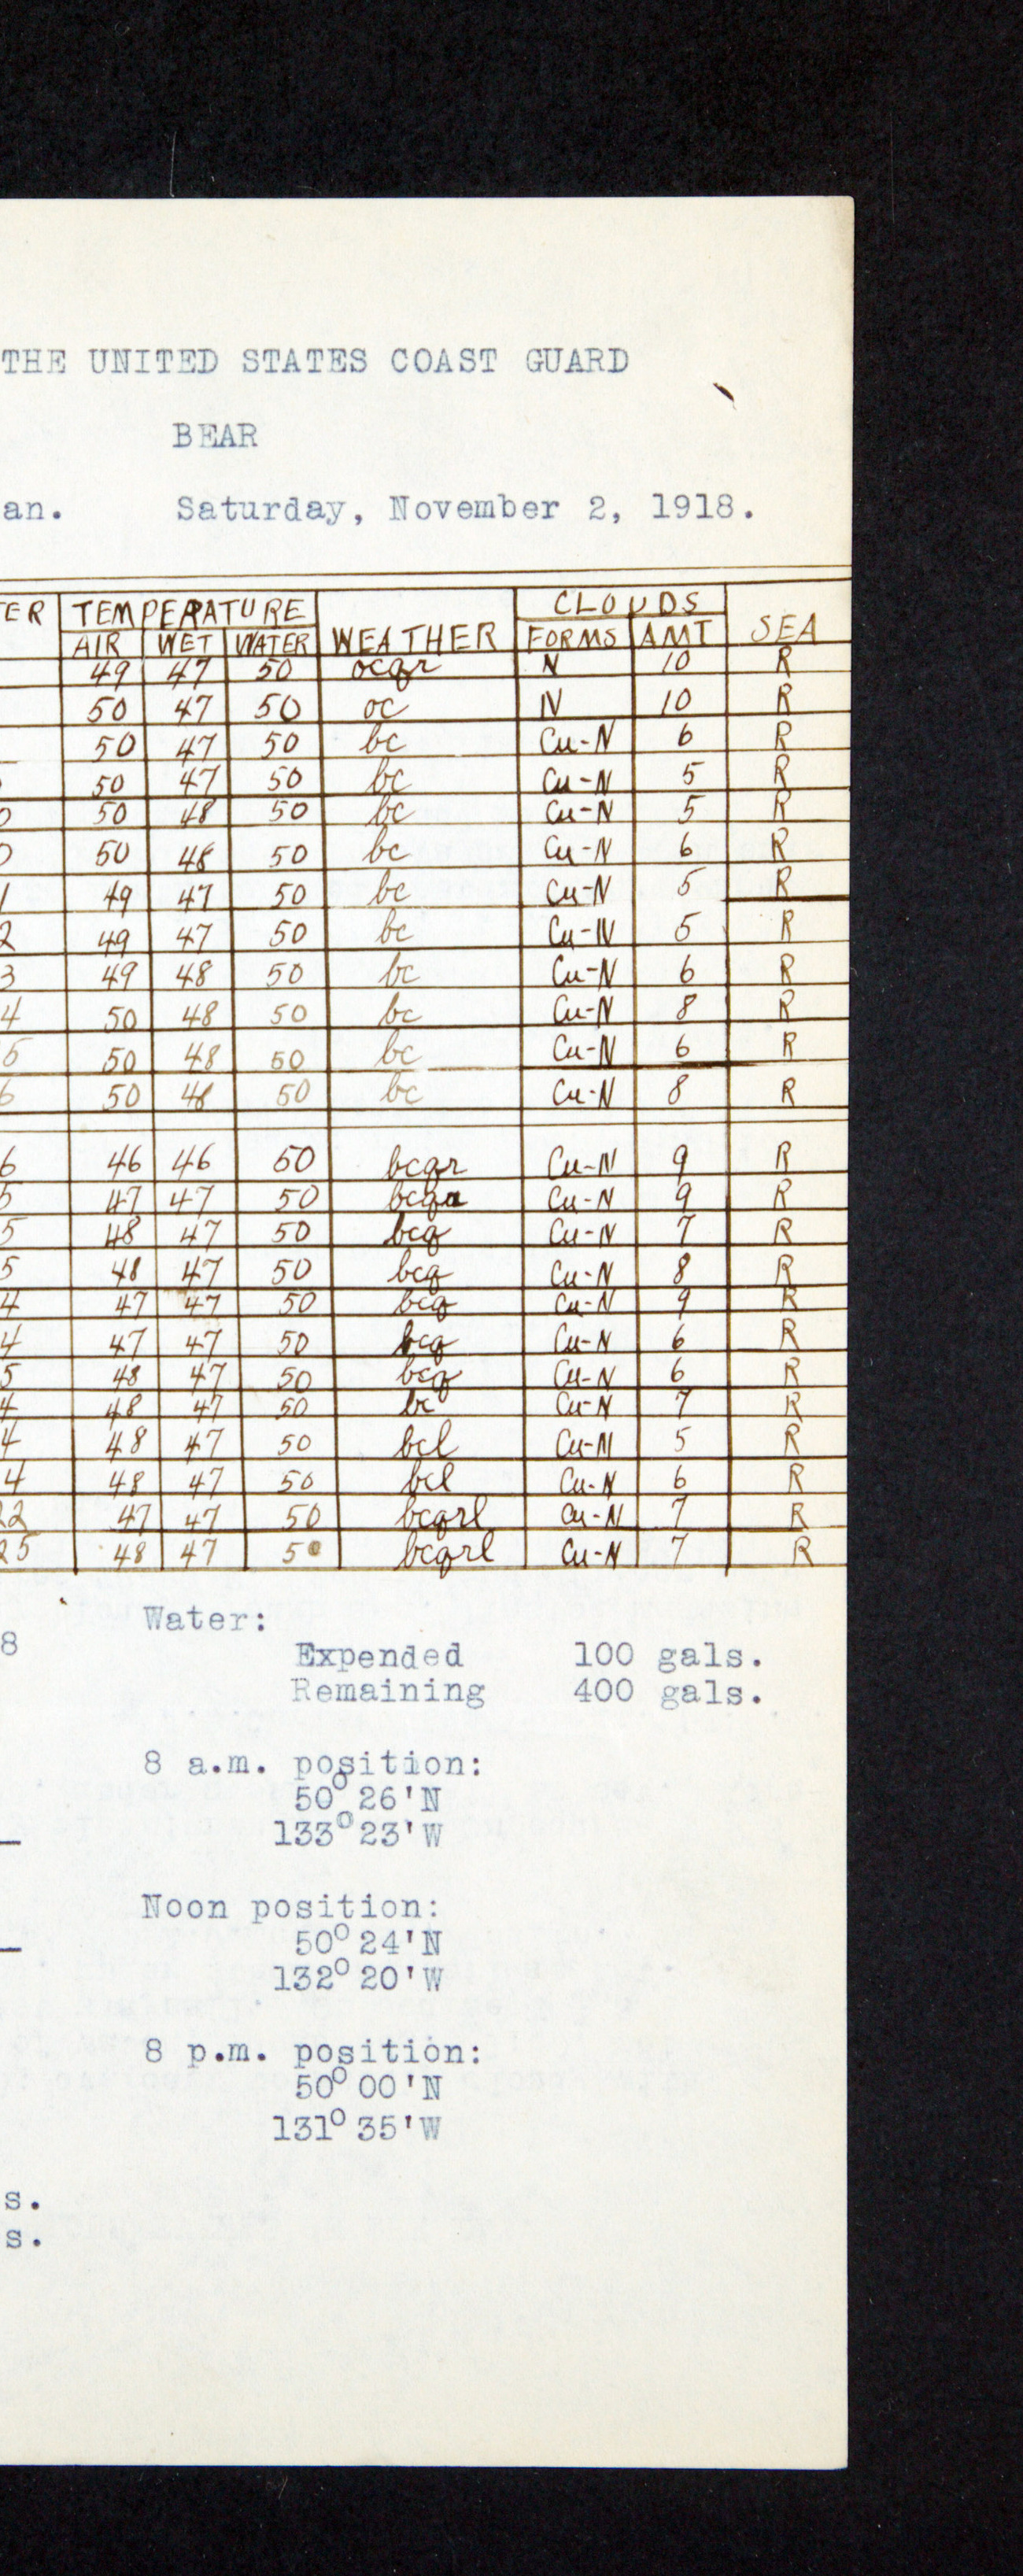 THE UNITED STATES COAST GUARD
BEAR
an. Saturday, November 2, 1918.
ER TEMPERATURE WEATHER CLOUDS SEA
AIR WET WATER FORMS AMT
49 47 50 ocqr N 10 R
50 47 50 oc N 10 R
50 47 50 bc Cu-N 6 R
50 47 50 bc Cu-N 5 R
0 50 48 50 bc Cu-N 5 R
0 50 48 50 bc Cu-N 6 R
1 49 47 50 bc Cu-N 5 R
2 49 47 50 bc Cu-N 5 R
3 49 48 50 bc Cu-N 6 R
4 50 48 50 bc Cu-N 8 R
5 50 48 50 bc Cu-N 6 R
6 50 48 50 bc Cu-N 8 R
6 46 46 50 bcqr Cu-N 9 R
5 47 47 50 Cu-N 9 R
5 48 47 50 bcq Cu-N 7 R
5 48 47 50 bcq Cu-N 8 R
4 47 47 50 bcq Cu-N 9 R
4 47 47 50 bcq Cu-N 6 R
5 48 47 50 bcq Cu-N 6 R
4 48 47 50 bc Cu-N 7 R
4 48 47 50 bcl Cu-N 5 R
4 48 47 50 bcl Cu-N 6 R
22 47 47 50 bcqrl Cu-N 7 R
25 48 47 50 bcqrl Cu-N 7 R
Water:
8
Expended 100 gals.
Remaining 400 gals.
8 a.m. position:
50° 26'N
133° 23'W
Noon position:
50° 24'N
132° 20'W
8 p.m. position:
50° 00'N
131° 35'W
s.
s.